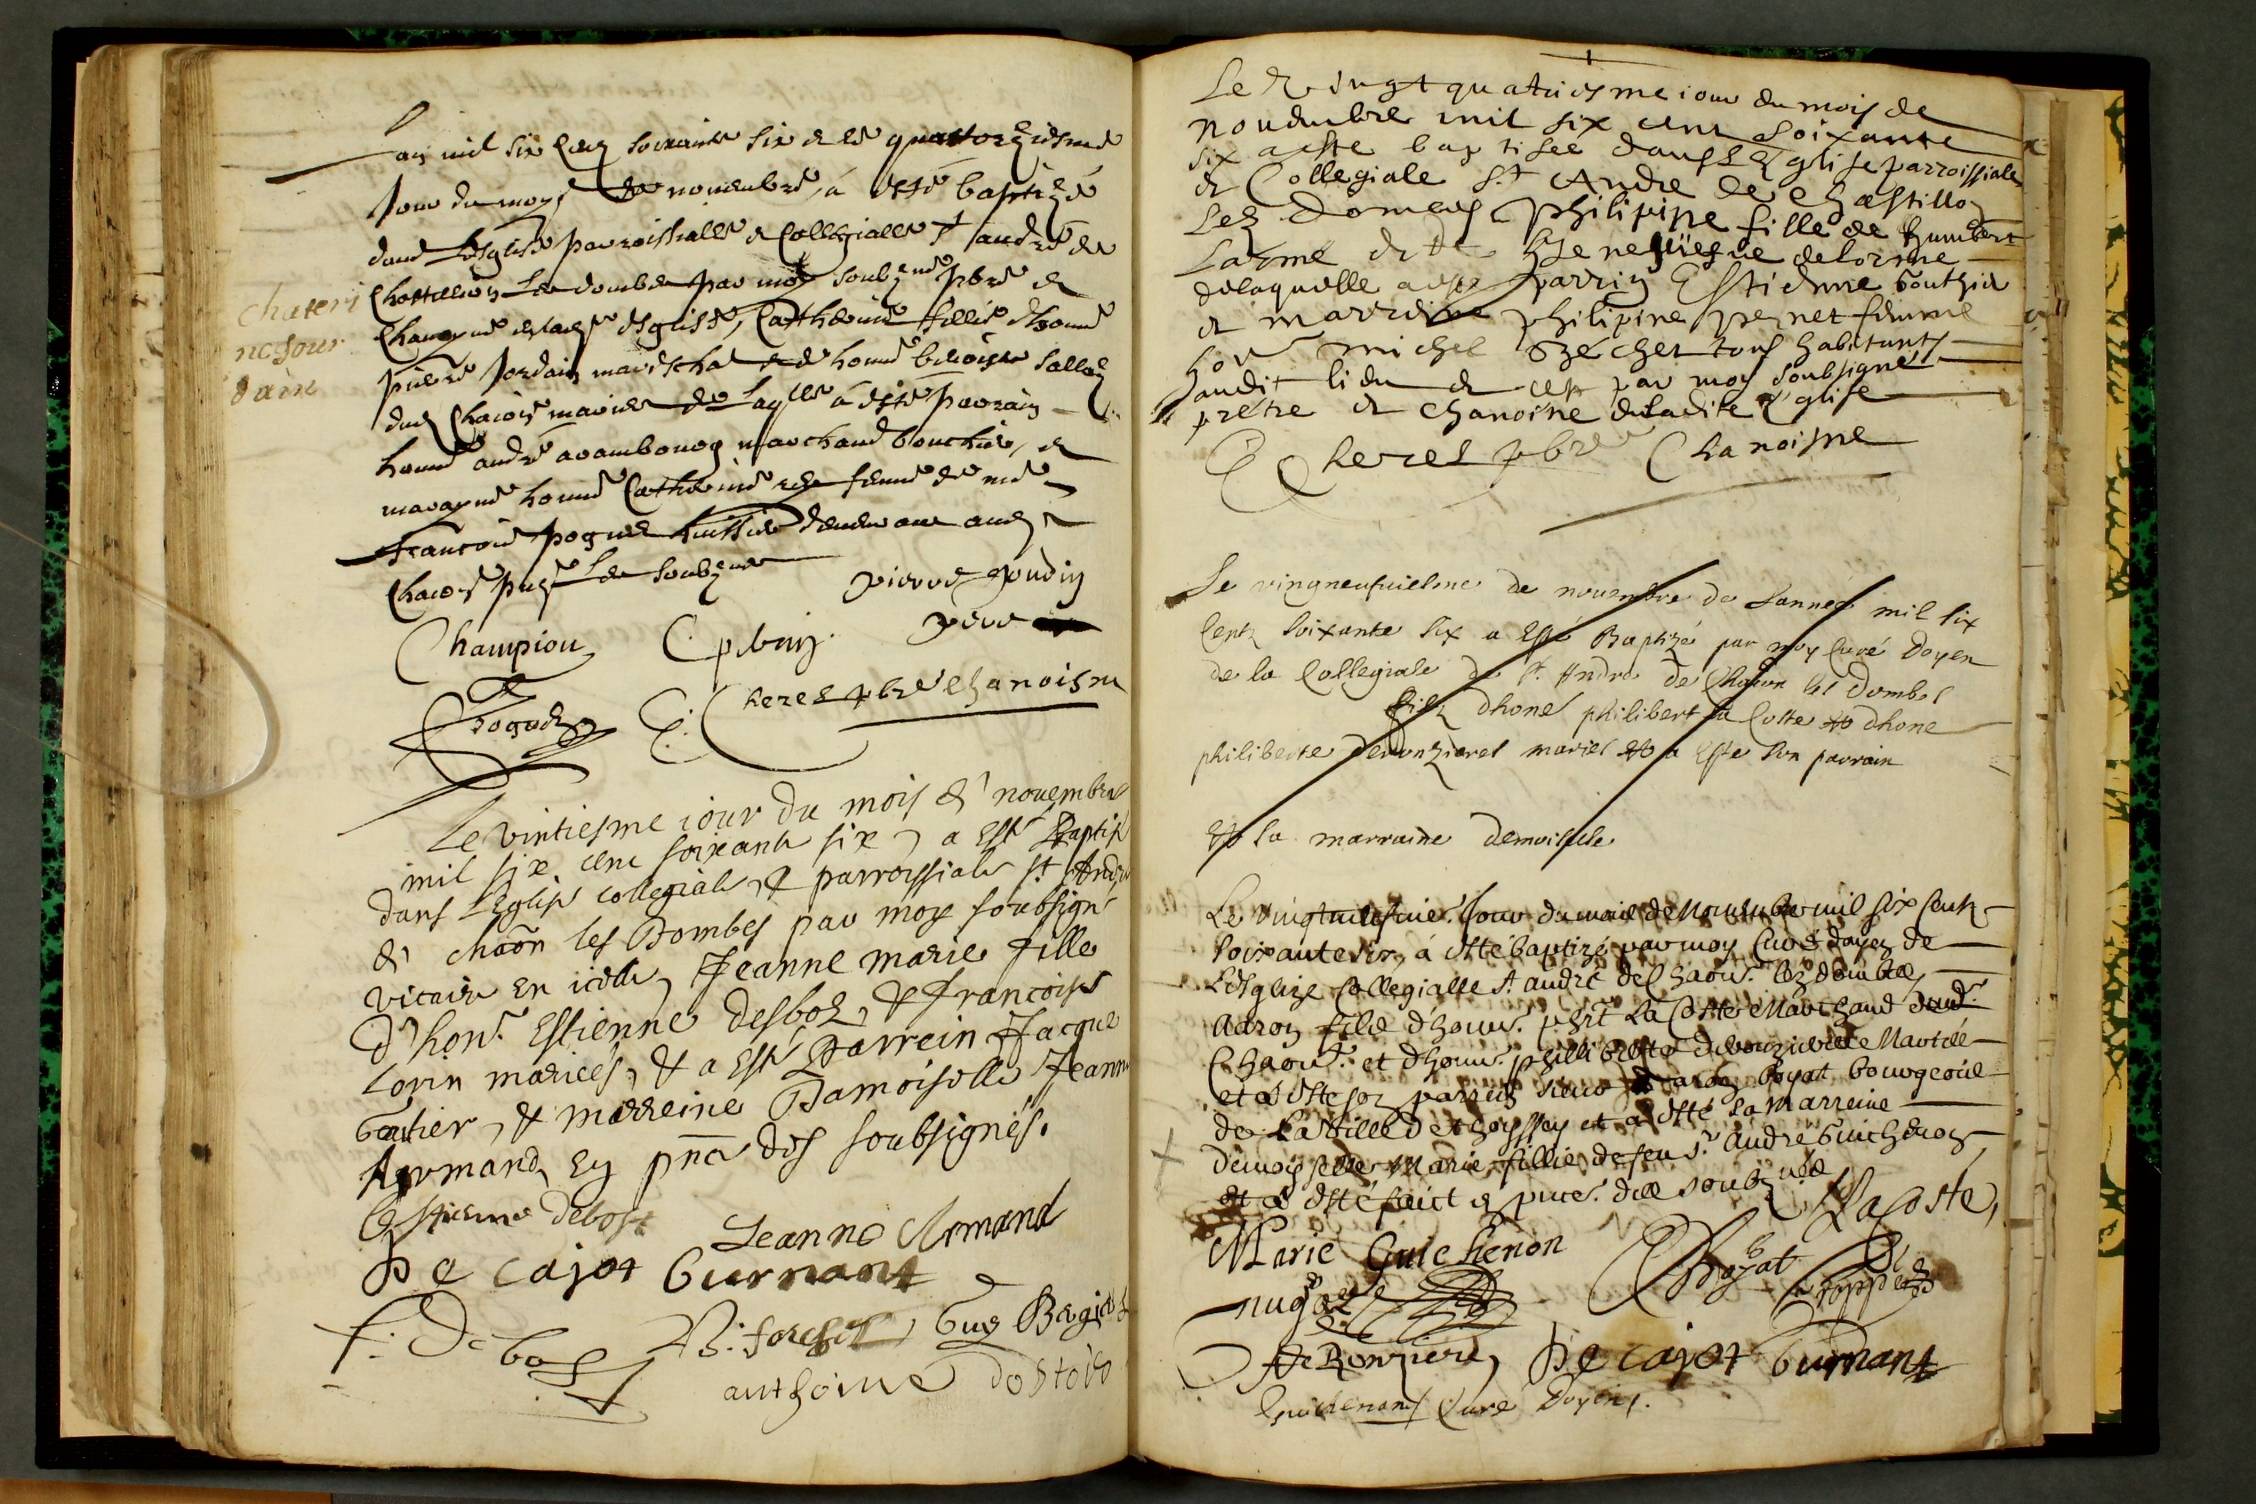 Lan mil six Cens soixante six et le quattorziesme
Jour du moys de novembre, á esté baptizée
dans Lesglise parroissialle et Collegialle St andré de
Chastillon Les dombes par moy soubzné pbre et
Chanoyne en ladte esglise, Catherine fillie dhonne
pierre Jordain mareschal et de honne benoiste
dud Chaōn mariés de Laqlle á esté parrain
honne andré marchand bouchier, et
marayne honne Catherine femme de me
francois pogues huissier demeurant aud
Chaōn les soubznes
chateri
ne jour
dain
pierre goudin
Champion C pbrin. père
E. Cheres pbre chanoisne
Le vintiesme iour du mois de novembre
mil six cent soixante six, a esté Baptisé
dans LEglise collegiale, & parroissiale st André
de chaōn les Dombes par moy soubsigné
vicaire en icelle, Jeanne marie fille
d'hon. Estienne desbos, & francoise
Lorin mariés, & a esté Parrein Jacque
Gautier, & marreine Damoiselle Jeanne
Armand, en pñce des soubsignés.
Estienne debost Jeanne Armand
De cajot Gurnant
f. Debost Guy
anthoine
Le vingt quatriesme iour du mois de
novembre mil six cent soixante
six a este baptisee dans L'Eglise parroissiale
et Collegiale St André de Chastillon
Lez Domes philipipe fille de humbert
Larme et de delorme
delaquelle a esté parrin Estienne bouthier
et marreine philipine pernet femme
hon michel tous habitants
audit lieu et ce par moy soubsigné
prétre et chanoine deladite Eglise
E Cheres pbre Chanoisne
Le vingneufuiesme de novembre de Lannéé mil six
Cents soixante six a Esté Baptizé par moy Curé Doyen
de la Collegiale de St. André de Chaōn les Dombes
filz dhoné philibert la Coste & dhone
philiberte deronzieres mariés & a Esté son parrain
& la marraine demoiselle
Le vingtneufuie. Jour du mois de Novembre mil six Cents
soixante six, á esté baptizé par moy Curé doyen de
L'Esglize Collegialle St andré de Chaōn. lez dombes,
Aaron filz d'honn. phlt La Coste Marchand dud.
Chaōn. et d'honn. phillibertte deronzieres Mariés
et á esté son parrein sieur aaron boyat bourgeois
de La Ville de thoyssey et á esté sa Marreine
demoyselle Marie fillie de feu sr. andré Guichenon
et á esté faict en pñce. des soubznés
Marie Guichenon Lacoste,
Boyat
De Ronzieres De cajot Gurnant
Guichenon Curé Doyen.